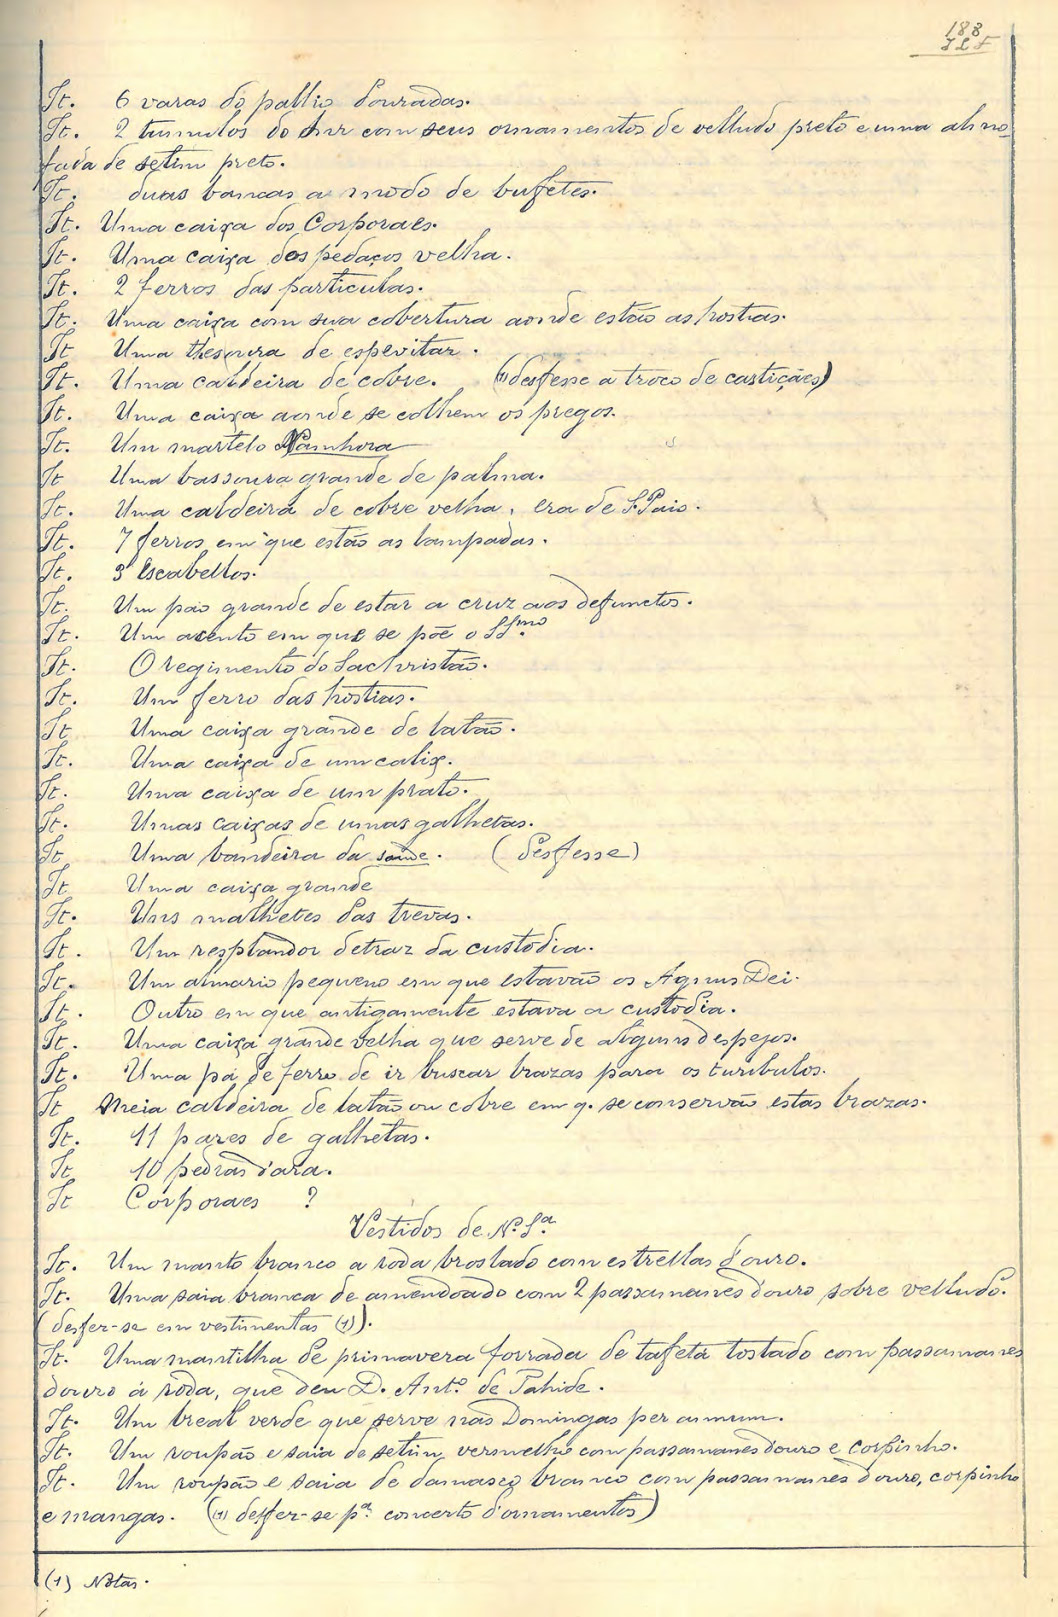 188
It. 6 varas do pallio douradas.
It. 2 tumulos do com seus ornamentos de velludo preto e uma almo-
fada de setim preto.
It. duas bancas a modo de bufetes.
It. Uma caixa dos Corporaes.
It. Uma caixa dos pedaços velha.
It. 2 ferros das particulas.
It. Uma caixa com sua cobertura aonde estão as hostias.
It Uma thesoura de espevitar.
It. Uma caldeira de cobre. ((1) desfesse a troco de castiçães)
It. Uma caixa aonde se colhem os pregos.
It. Um martelo
It Uma bassoura grande de palma.
It. Uma caldeira de cobre velha, era de S. Paio.
It. 7 ferros em que estão as lampadas.
It. 3 Escabellos.
It. Um páo grande de estar a cruz aos defunctos.
It. Um acento em que se põe o SSmo.
It. O regimento do Sachristão.
It. Um ferro das hostias.
It Uma caixa grande de latão.
It. Uma caixa de um calix.
It. Uma caixa de um prato.
It. Umas caixas de umas galhetas.
It Uma bandeira da saude. (desfesse)
It Uma caixa grande
It. Uns malhetes das trevas.
It. Um resplandor detraz da custodia.
It. Um almario pequeno em que estavão os Agnus Dei.
It. Outro em que antigamente estava a custodia.
It. Uma caixa grande velha que serve de alguns despejos.
It. Uma pá de ferro de ir buscar brazas para os turibulos.
It Meia caldeira de latão ou cobre em q. se conservão estas brazas.
It. 11 pares de galhetas.
It 10 pedras d'ara.
It Corporaes ?
Vestidos de N.ª S.ª
It. Um manto branco a roda broslado com estrellas d'ouro.
It. Uma saia branca de amendoado com 2 passamanes d'ouro sobre velludo.
(desfer-se em vestimentas (1)).
It. Uma mantilha de primavera forrada de tafetá tostado com passamanes
douro á roda, que deu D. Ant.º de Tahide.
It. Um breal verde que serve nas Domingas per annum.
It. Um roupão e saia de setim vermelho com passamanes d'ouro e corpinho.
It. Um roupão e saia de damasco branco com passamanes d'ouro, corpinho
e mangas. ((1) desfer-se pª. concerto d'ornamentos)
(1) Notas.